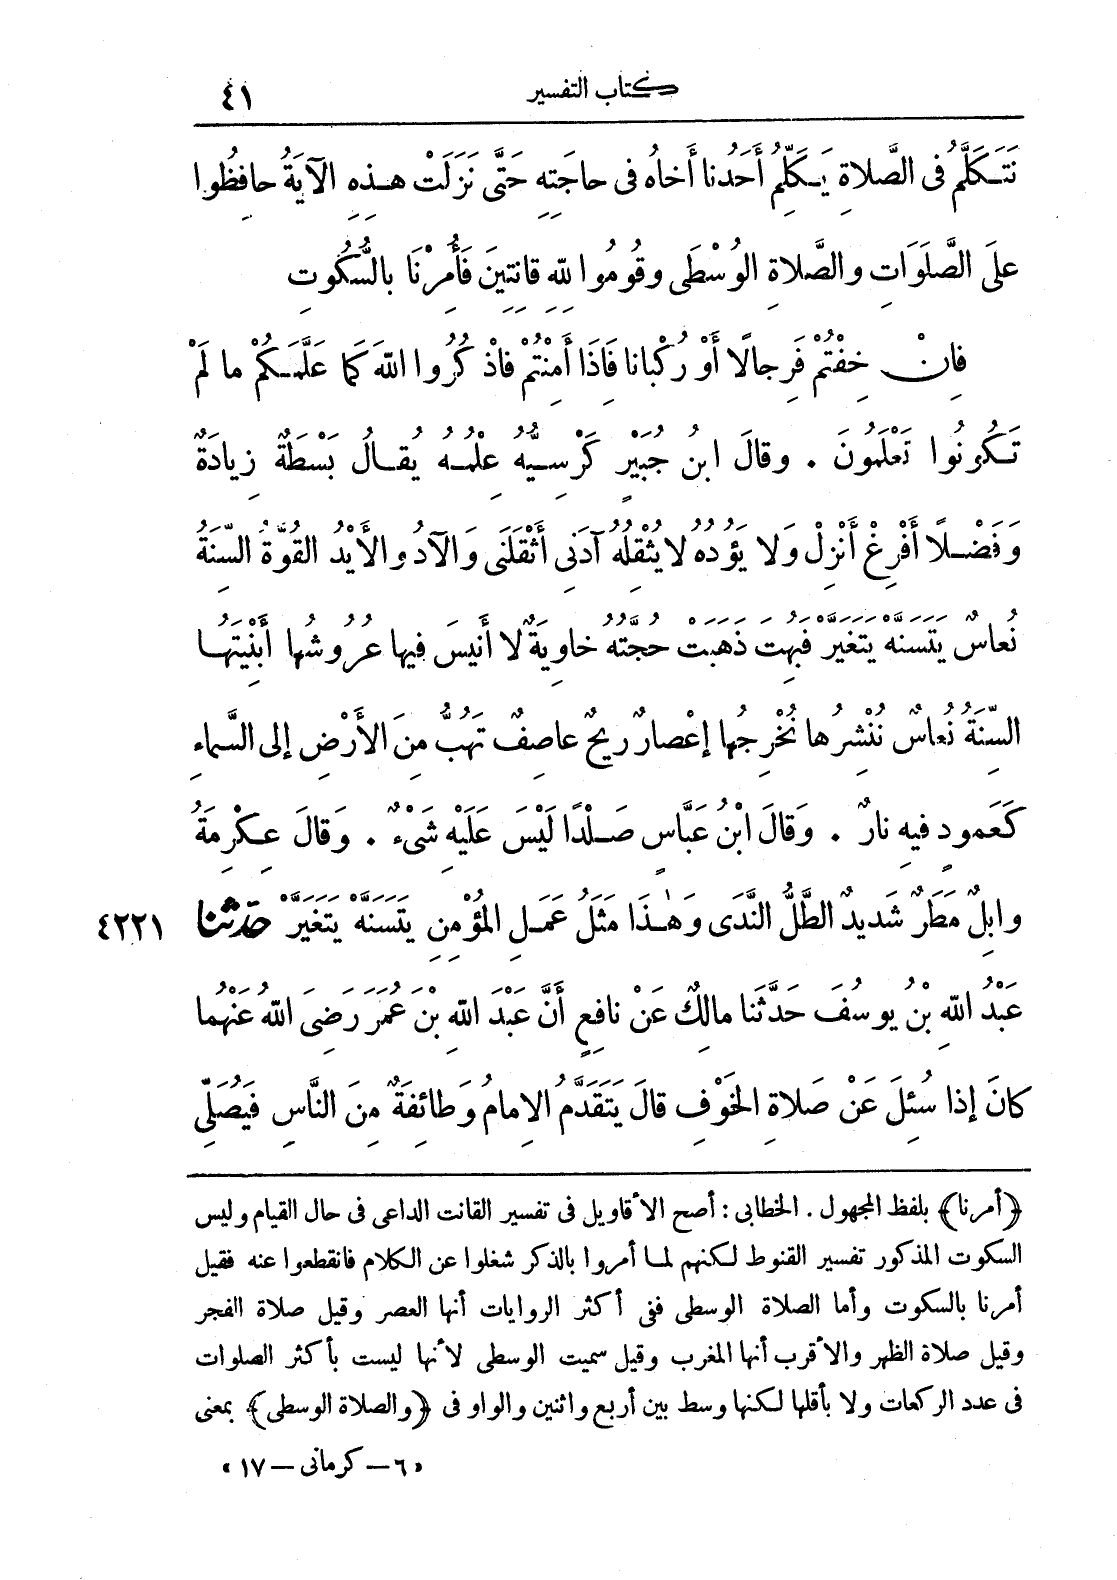 كتاب التفسير ٤١
نَتَكَلَّمُ فى الصَّلاةِ يَكَلِّمُ أَحَدُنا أَخاهُ فى حاجَتِهِ حَتَّى نَزَلَتْ هذِهِ الآيَةُ حافِظُوا
علَى الصَّلَوَاتِ والصَّلاةِ الوُسْطَى وقُومُوا لِلّهِ قانتِينَ فَأُمِرْنَا بالسُّكُوتِ
فإنْ خِفْتُمْ فَرِجالًا أَوْ رُكْبانا فَاذَا أَمِنْتُمْ فاذْكُرُوا اللهَ كَمَا عَلَّمَكُمْ ما لَمْ
تَكُونُوا تَعْلَمُونَ . وقالَ ابنُ جُبَيْرٍ كُرْسِيُّهُ عِلْمُهُ يُقالُ بَسْطَةٌ زِيادَةٌ
وَفَضْلًا أَفْرِغْ أَنْزِلْ وَلا يَؤُدُهُ لا يُثْقِلُهُ آدَنِى أَثْقَلَنى وَالآدُ والأَيْدُ القُوَّةُ السِّنَةُ
نُعاسٌ يَتَسَنَّهْ يَتَغَيَّرْ فَبُهِتَ ذَهَبَتْ حُجَّتُهُ خاوِيَةٌ لا أَنيسَ فيها عُرُوشُها أَبْنِيَتُها
السِّنَةُ نُعاسٌ نُنْشِرُها نُخْرِجُها إعْصارٌ رِيحٌ عاصِفٌ تَهُبُّ مِنَ الأَرْضِ إلى السَّماءِ
كَعَمودٍ فيهِ نارٌ . وَقالَ ابْنُ عَبَّاسٍ صَلْدًا لَيْسَ عَلَيْهِ شَىْءٌ . وَقالَ عِكْرِمَةُ
وابِلٌ مَطَرٌ شَديدٌ الطَّلُّ النَّدَى وَهٰذَا مَثَلُ عَمَلِ المُؤْمِنِ يَتَسَنَّهْ يَتَغَيَّرْ حَدَّثَنَا ٤٢٢١
عَبْدُ اللهِ بْنُ يُوسُفَ حَدَّثَنا مالِكٌ عَنْ نافِعٍ أَنَّ عَبْدَ اللهِ بْنَ عُمَرَ رَضِىَ اللهُ عَنْهُما
كانَ إذا سُئِلَ عَنْ صَلاةِ الخَوْفِ قالَ يَتَقَدَّمُ الإمامُ وَطائِفَةٌ مِنَ النَّاسِ فَيُصَلِّى
﴿أمرنا﴾ بلفظ المجهول . الخطابى : أصح الأقاويل فى تفسير القانت الداعى فى حال القيام وليس
السكوت المذكور تفسير القنوط لكنهم لما أمروا بالذكر شغلوا عن الكلام فانقطعوا عنه فقيل
أمرنا بالسكوت وأما الصلاة الوسطى ففى أكثر الروايات أنها العصر وقيل صلاة الفجر
وقيل صلاة الظهر والأقرب أنها المغرب وقيل سميت الوسطى لأنها ليست بأكثر الصلوات
فى عدد الركعات ولا بأقلها لكنها وسط بين أربع واثنين والواو فى ﴿والصلاة الوسطى﴾ بمعنى
« ٦ — كرمانى — ١٧ »